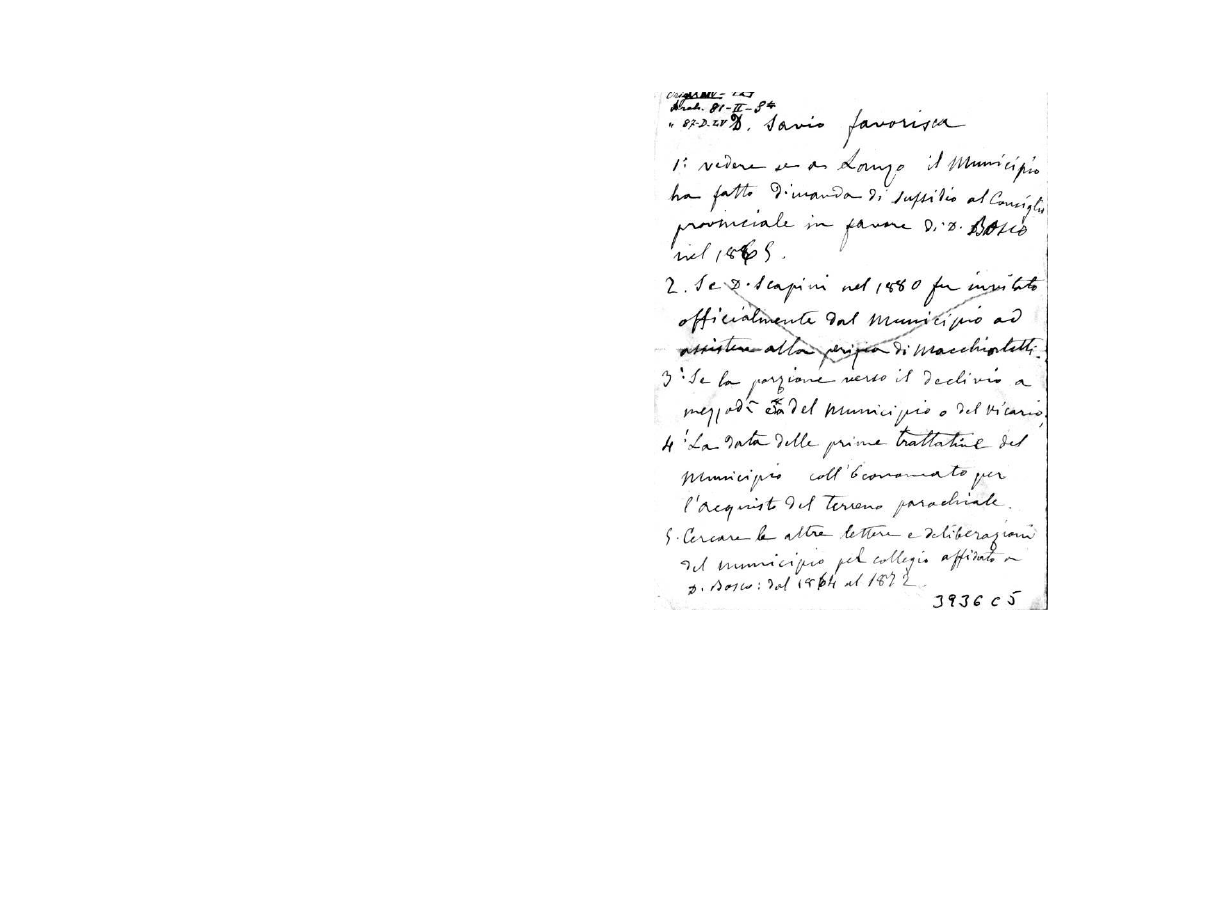 Arch. 81-II-34
" 87-D.IV D. Savio favorisca
1: vedere se a Lanzo il Municipio
ha fatto dimanda di sussidio al Consiglio
provinciale in favore di D. Bosco
nel 1865.
2. Se D. Scapini nel 1880 fu invitato
officialmente dal Municipio ad
assistere alla perizia di Macchiorletti.
3: Se la porzione verso il declivio a
mezzodì era del Municipio o del Vicario,
4: La data delle prime trattative del
Municipio coll'Economato per
l'acquisto del terreno parochiale.
5. Cercare le altre lettere e deliberazioni
del municipio pel collegio affidato a
D. Bosco: dal 1864 al 1872
3936 C 5